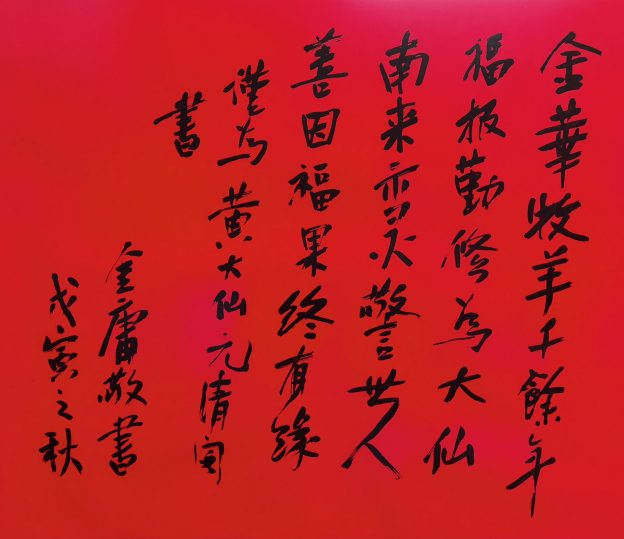 金華牧羊千餘年
福报勤修為大仙
南来示灵警世人
善因福果終有緣
謹為黄大仙元清阁
書
金庸敬書
戊寅之秋